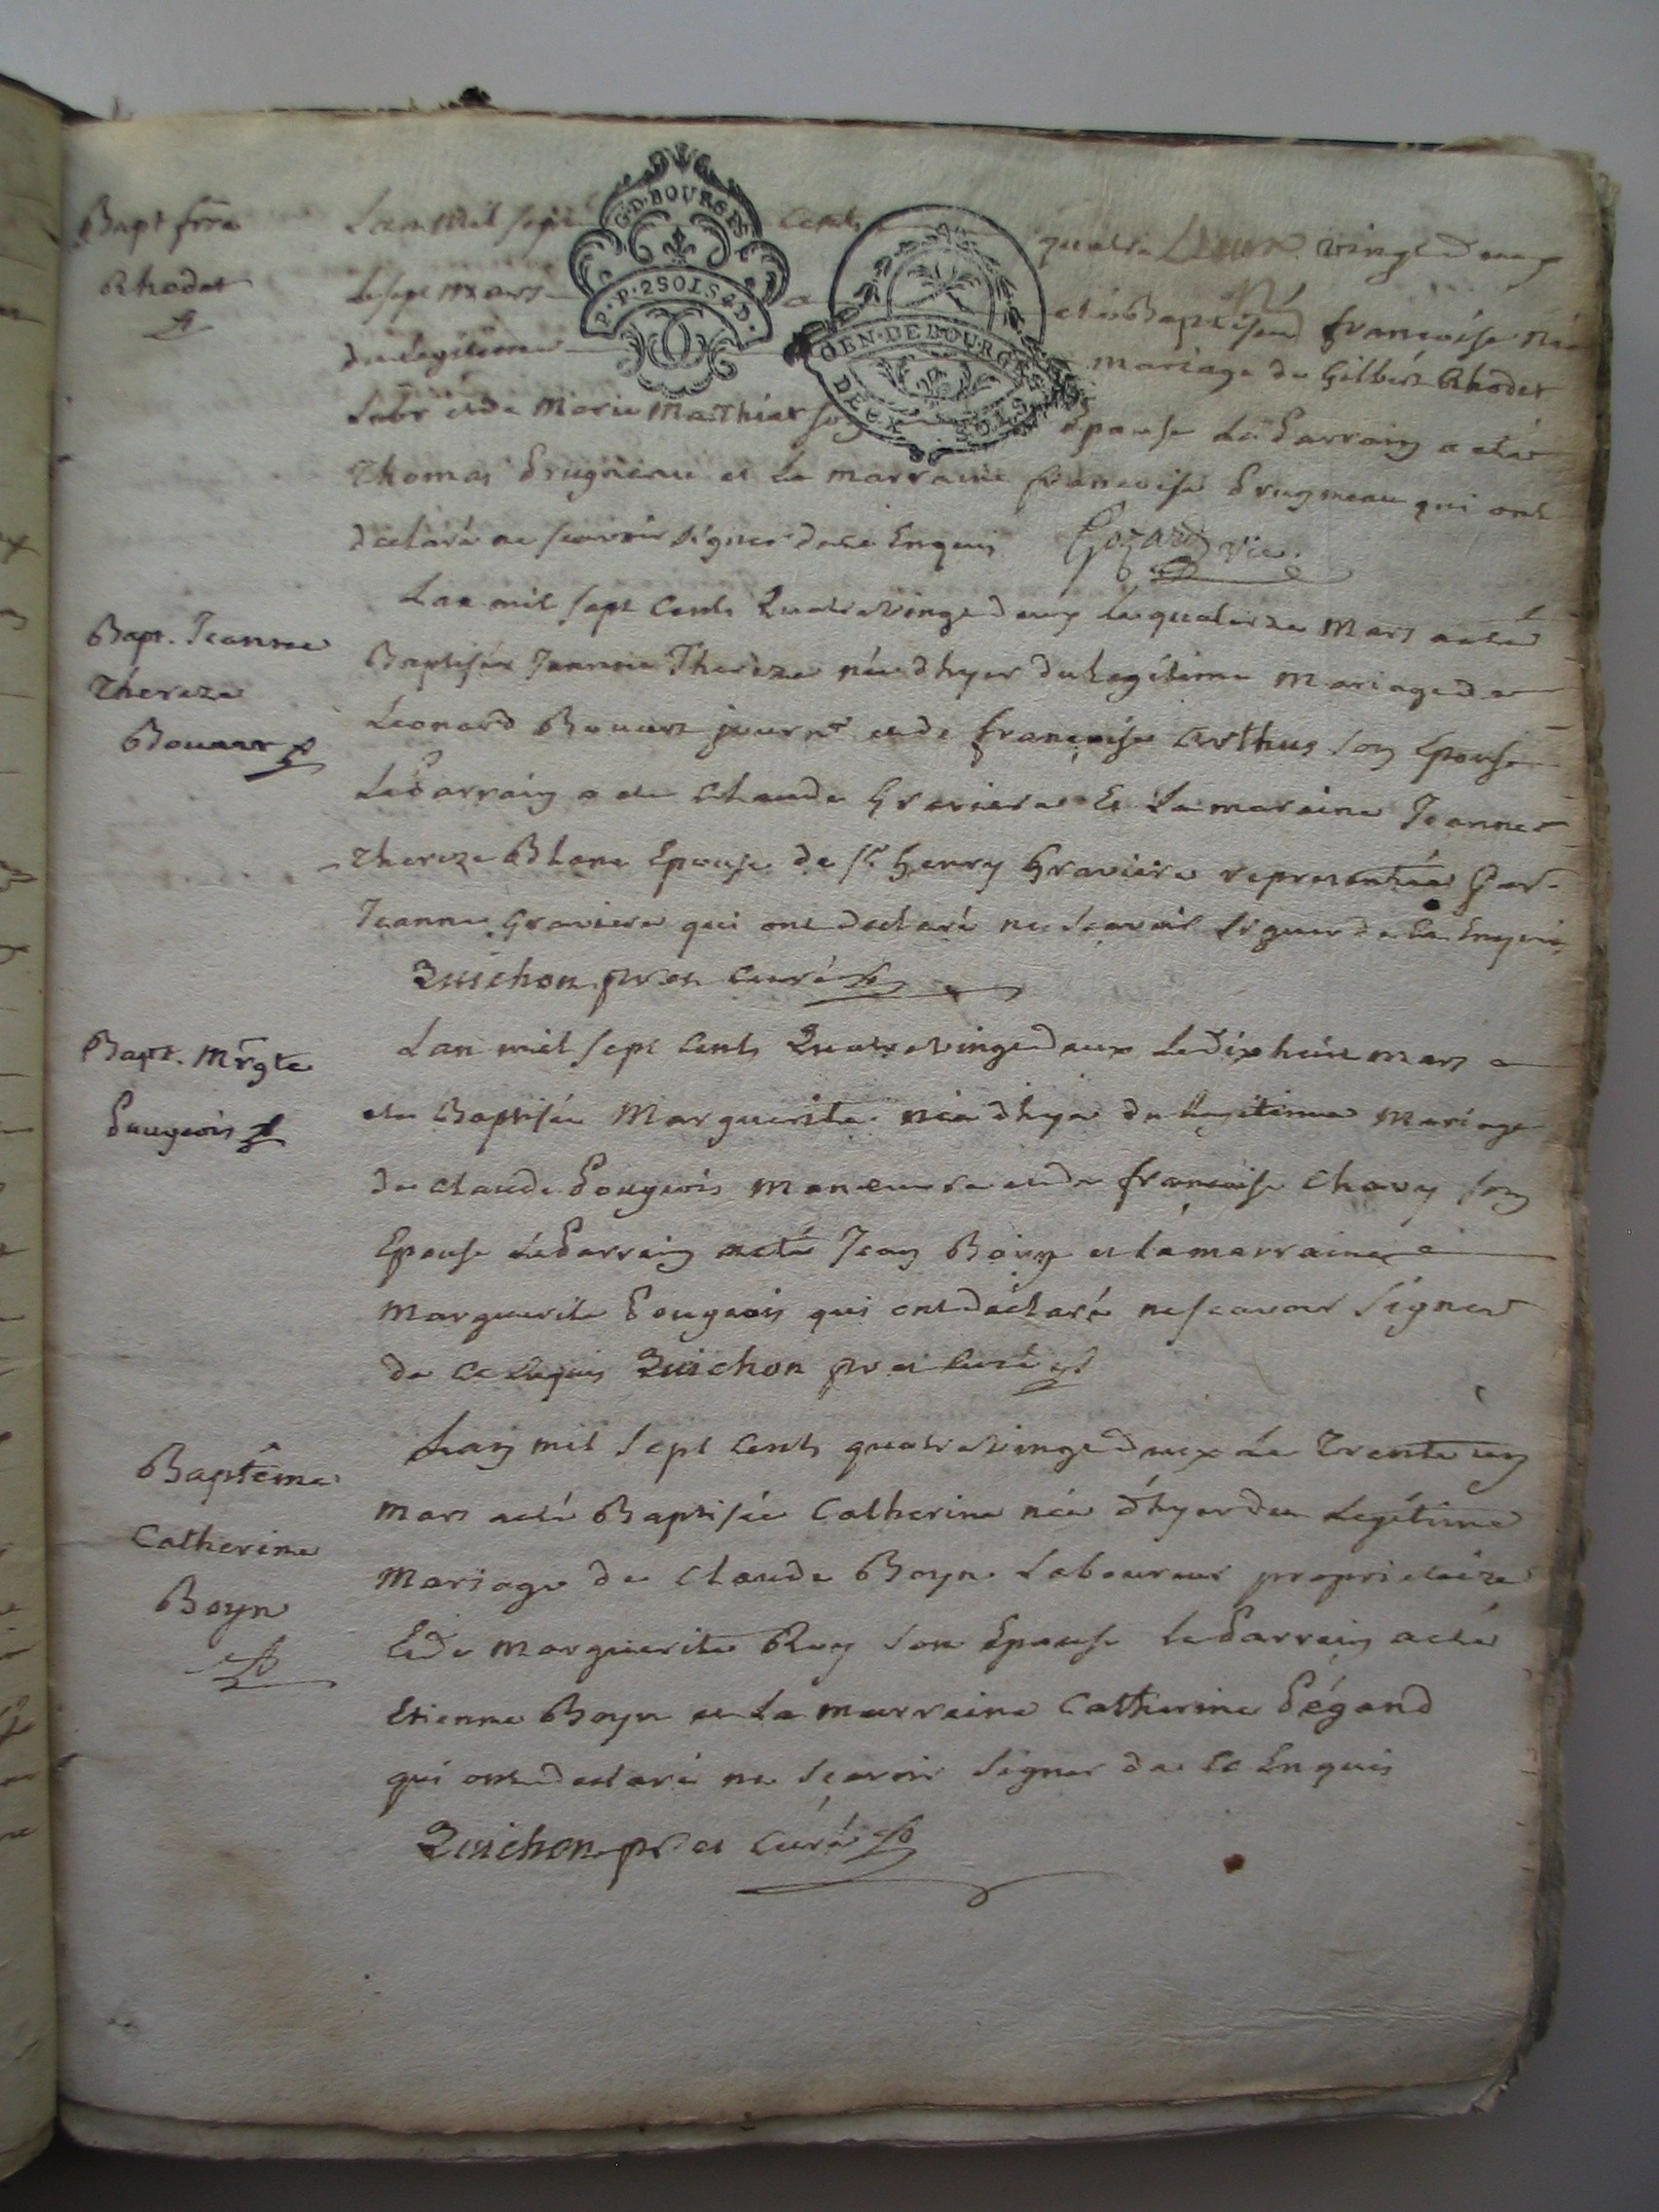 G.D.BOURGES
P.P.2SOLS4D.
GEN.DEBOURGES
DEUX SOLS
Bapt frse
Rhodet
Lan mil sept cents quatre vingt deux
le sept mars a eté Baptisée françoise née
du légitime mariage de Gilbert Rhodet
labr et de Marie Mathiat son Epouse Le Parrain a eté
Thomas Prugneau et la marraine françoise Prugneau qui ont
déclaré ne scavoir signer de ce Enquis Gozard vic.
Bapt. Jeanne
Thereze
Bouart
Lan mil sept cents Quatrevingt deux le quatorze Mars a eté
Baptisée Jeanne Thereze née dhyer du Legitime Mariage de
Leonard Bouart journr et de françoise Arthus son Epouse
Le Parrain a ete Claude Graviere Et La maraine Jeanne
Thereze Bhone Epouse de sr henry Graviere representée Par
Jeanne Graviere qui ont declaré ne Scavoir Signer de Ce Enquis
Quichon pr et curé
Bapt. Mrgte
Pougeois
Lan mil sept Cents Quatrevingt deux Le dix huit mars a
ete Baptisée Marguerite née dhyer du Legitime Mariage
de Claude Pougeois Manœuvre et de françoise Chavy son
Epouse Le Parrain a eté Jean Boin et la marraine
Marguerite Pougeois qui ont déclaré ne scavoir Signer
de Ce Enquis Quichon pr et Curé
Baptême
Catherine
Boyn
Lan mil Sept Cents quatrevingt deux Le Trente un
Mars a eté Baptisée Catherine née dhyer du Legitime
Mariage de Claude Boyn Laboureur proprietaire
Et de Marguerite Ray Son Epouse Le Parrain a eté
Etienne Boyn et La marraine Catherine Pégand
qui ont declaré ne Scavoir Signer de Ce Enquis
Quichon pr et Curé